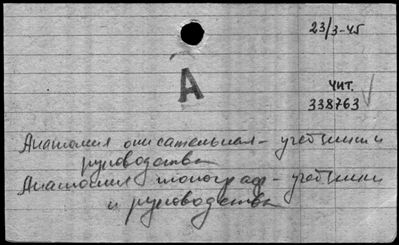 23/3-45
А
чит.
338763
Анатомия описательная - учебники и
руководства
Анатомия топограф - учебники
и руководства